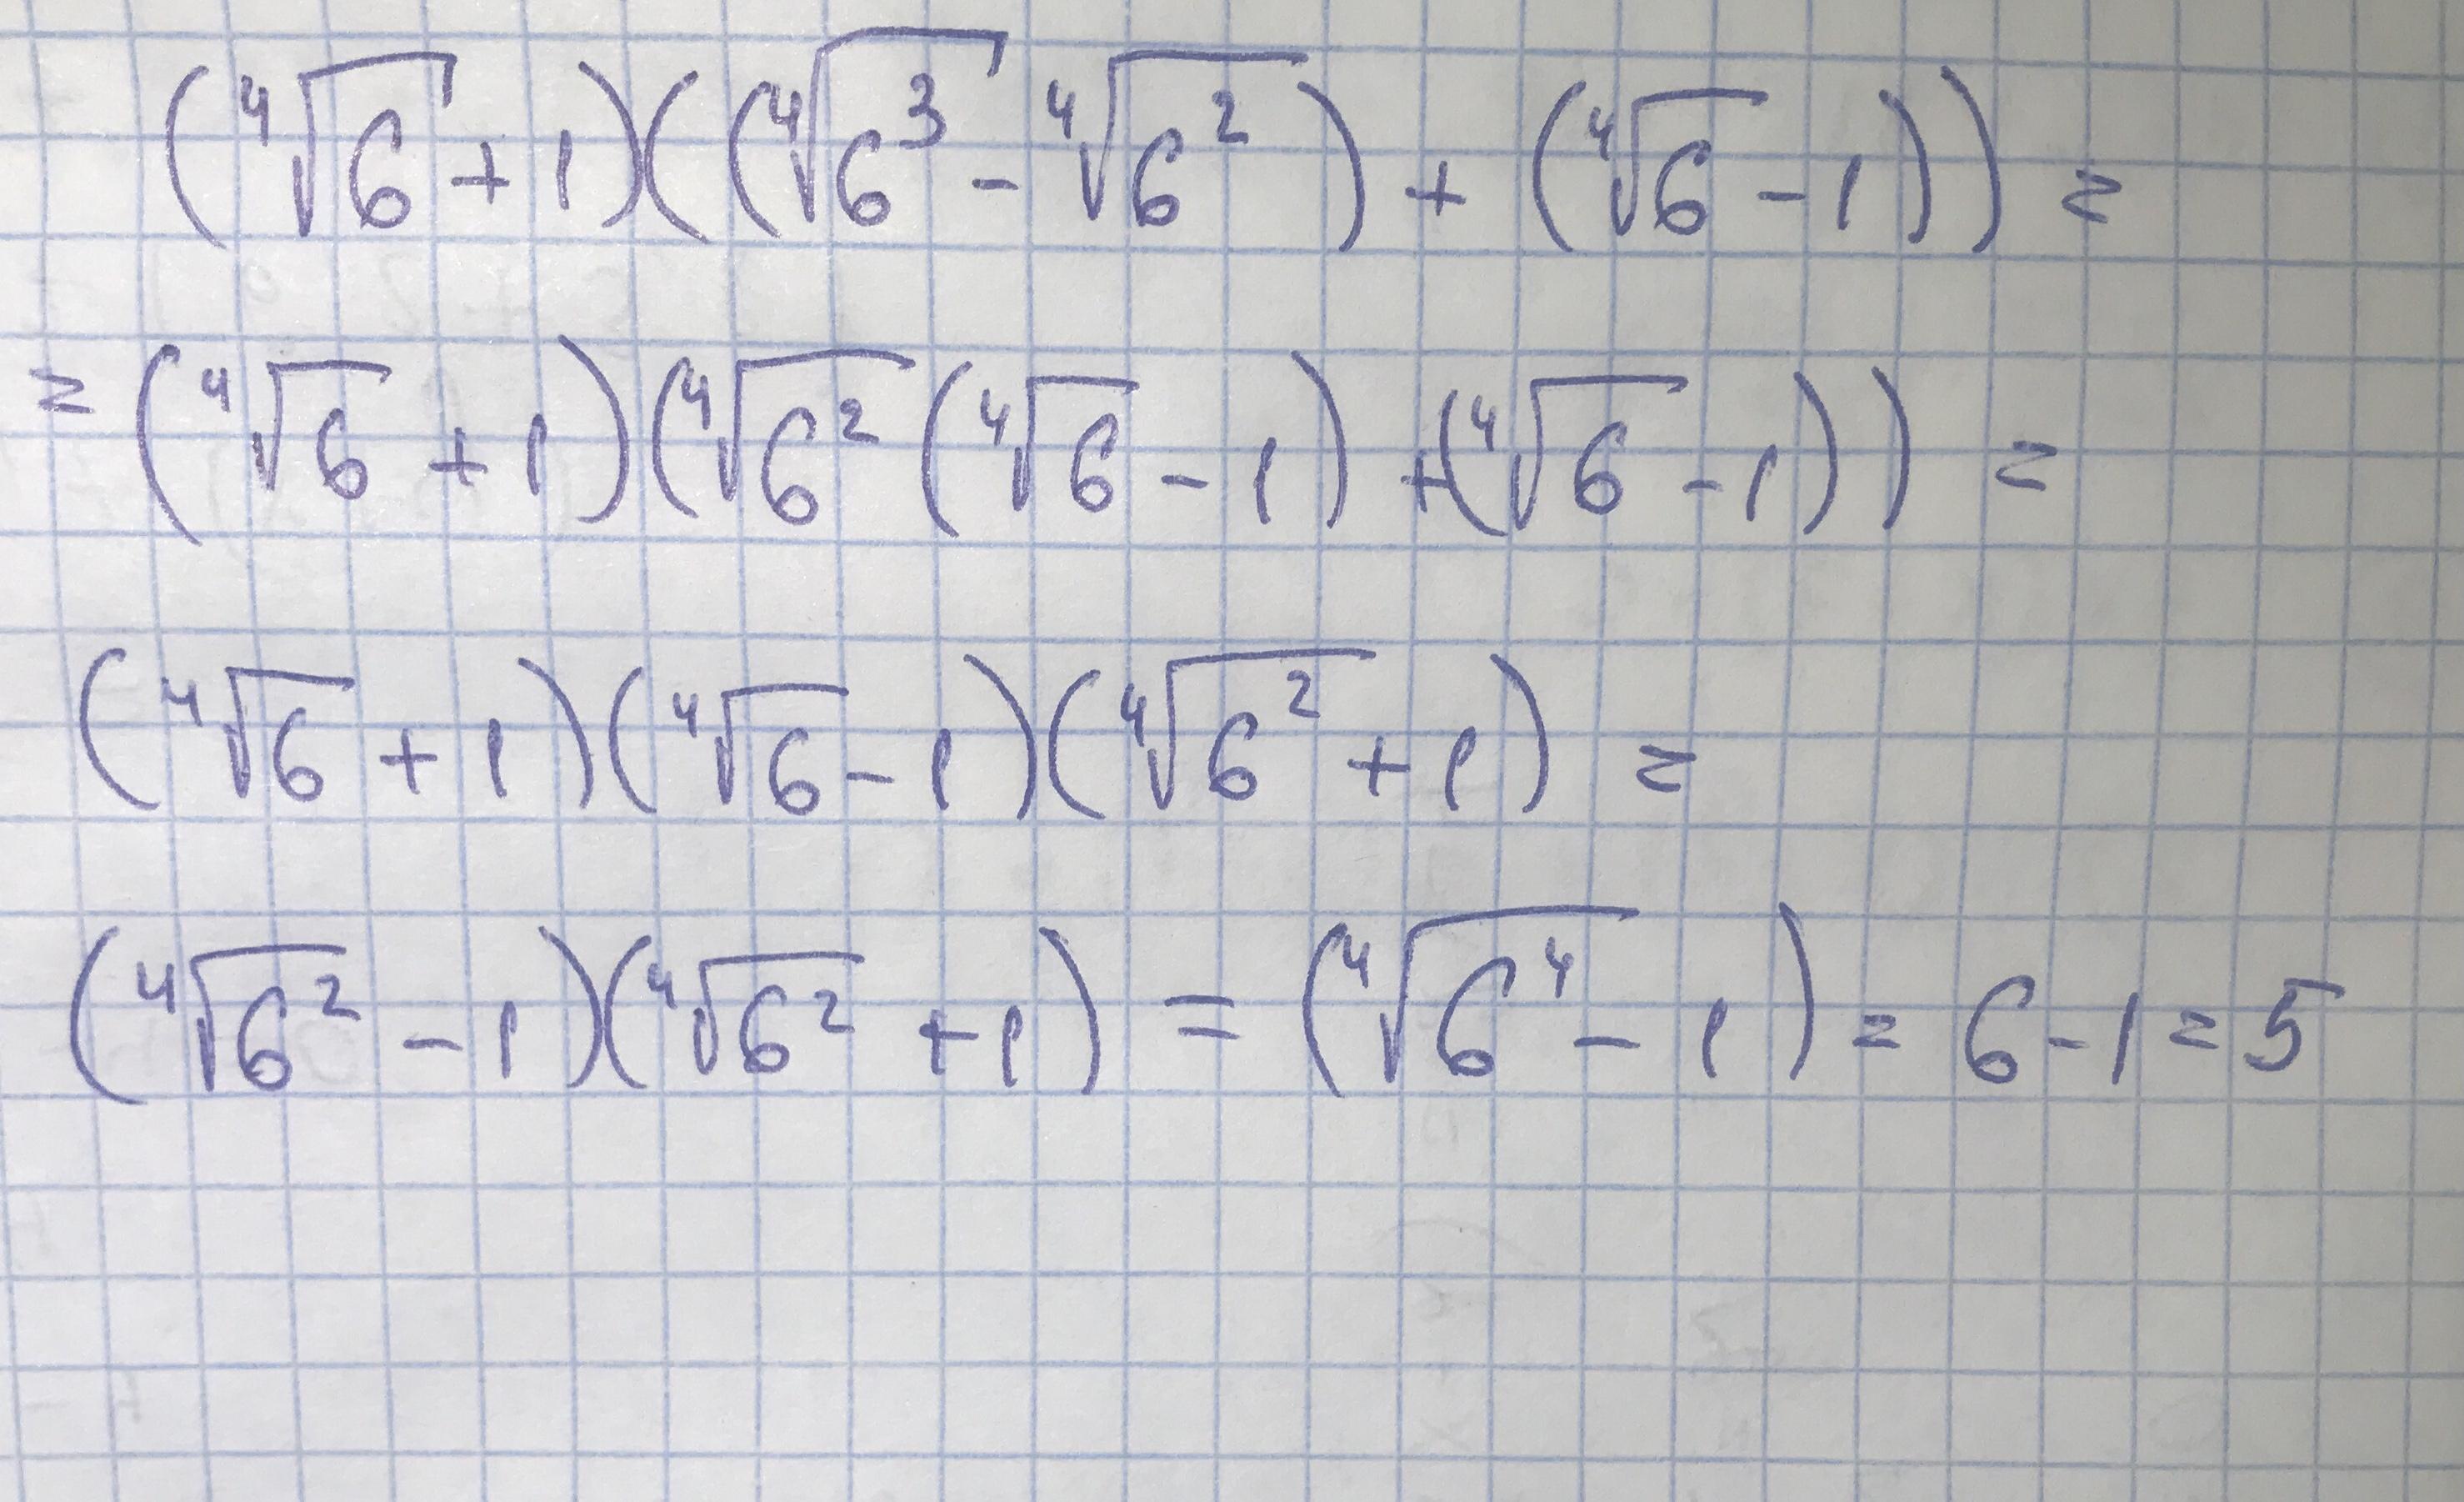 (⁴√6 + 1)((⁴√6³ - ⁴√6²) + (⁴√6 - 1)) =
= (⁴√6 + 1)(⁴√6² (⁴√6 - 1) + (⁴√6 - 1)) =
(⁴√6 + 1)(⁴√6 - 1)(⁴√6² + 1) =
(⁴√6² - 1)(⁴√6² + 1) = (⁴√6⁴ - 1) = 6 - 1 = 5